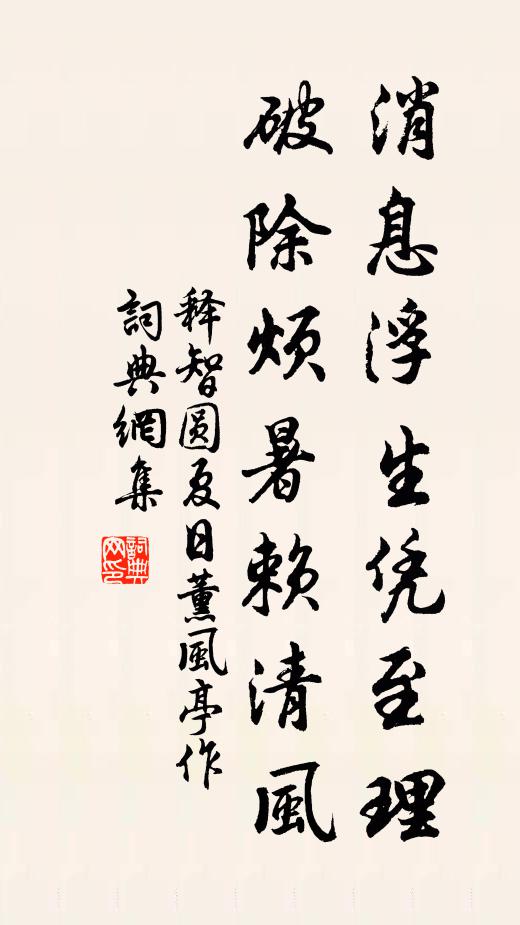 消息浮生凭至理
破除烦暑赖清風
释智圆夏日薰風亭作
詞典網集
詞典網印